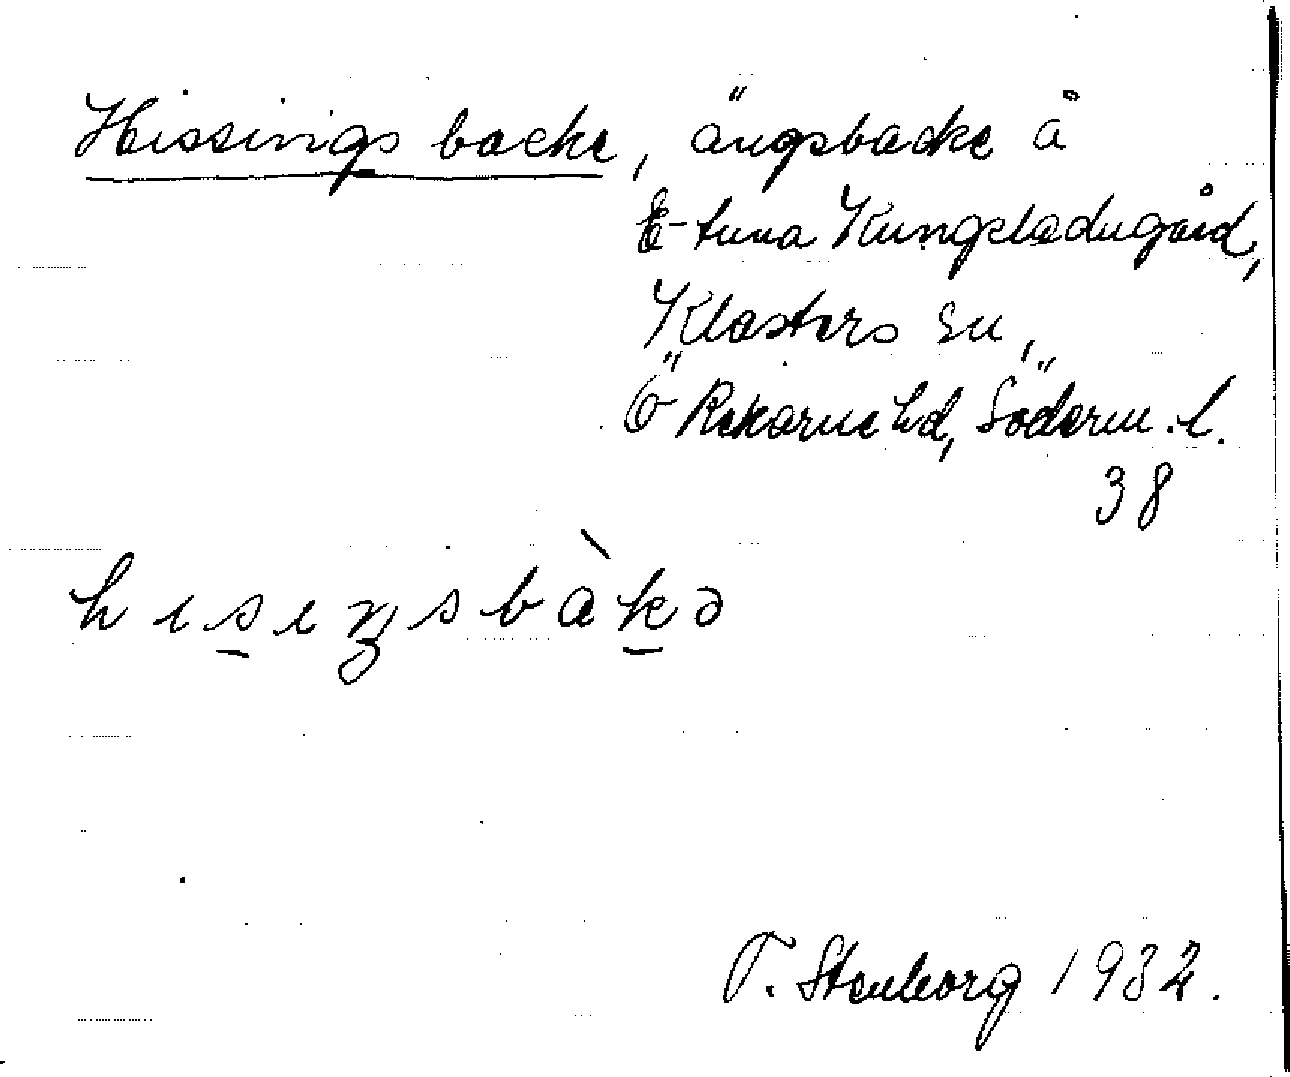 Hissings backe, ängsbacke å
E-tuna Kungsladugård,
Klosters sn,
Ö Rekarne hd, Söderm. l.
38
hısıŋsbàkə
T. Stenborg 1932.